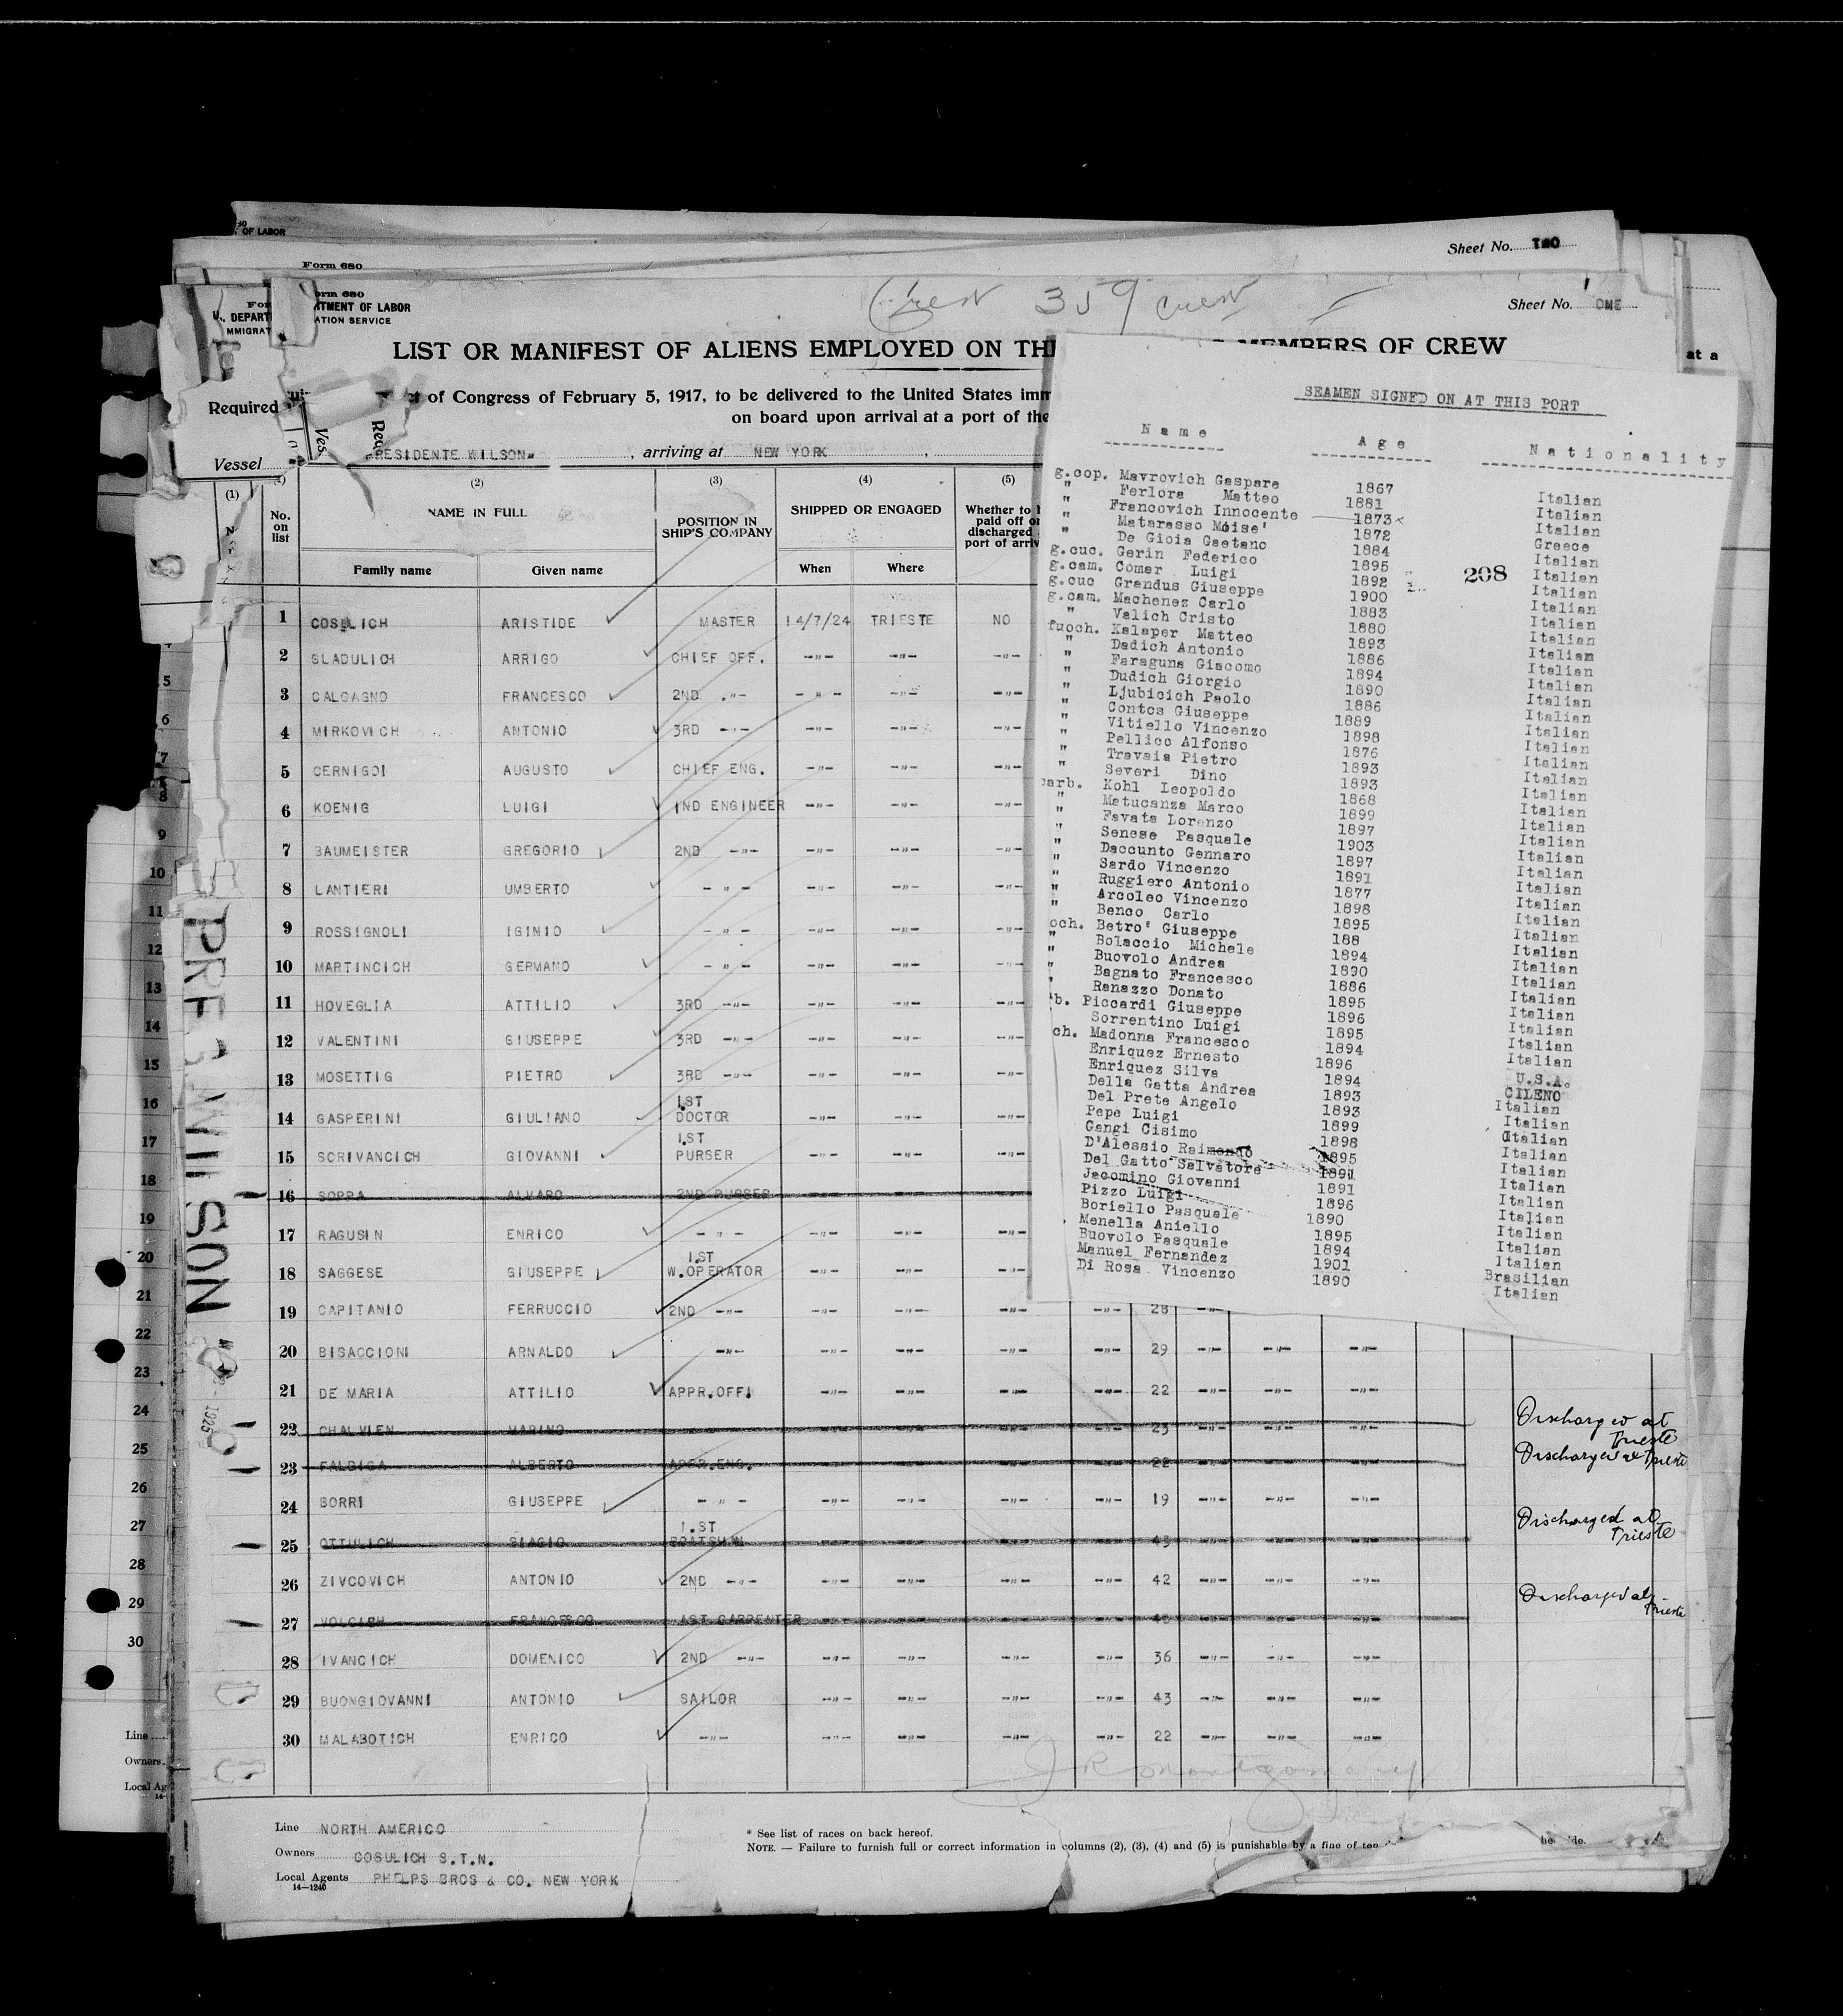 OF LABOR
Sheet No. TWO
Form 680
Form 680
U. DEPARTMENT OF LABOR
IMMIGRATION SERVICE
359
Sheet No. ONE
LIST OR MANIFEST OF ALIENS EMPLOYED ON TH MEMBERS OF CREW
at a
Required
of Congress of February 5, 1917, to be delivered to the United States imm
on board upon arrival at a port of the
Vessel PRESIDENTE WILSON" , arriving at NEW YORK ,
(1) (2) (3) (4) (5)
No. on list NAME IN FULL POSITION IN SHIP'S COMPANY SHIPPED OR ENGAGED
Whether to
paid off or
discharged
port of arriv
Family name Given name When Where
1 COSULICH ARISTIDE MASTER 14/7/24 TRIESTE NO
2 GLADULICH ARRIGO CHIEF OFF. -"- -"- -"-
3 CALCAGNO FRANCESCO 2ND -"- -"- -"- -"-
4 MIRKOVICH ANTONIO 3RD -"- -"- -"- -"-
5 CERNIGOI AUGUSTO CHIEF ENG. -"- -"- -"-
6 KOENIG LUIGI 1ND ENGINEER -"- -"- -"-
7 BAUMEISTER GREGORIO 2ND -"- -"- -"- -"-
8 LANTIERI UMBERTO -"- -"- -"- -"-
9 ROSSIGNOLI IGINIO -"- -"- -"- -"-
10 MARTINCICH GERMANO -"- -"- -"- -"-
11 HOVEGLIA ATTILIO 3RD -"- -"- -"- -"-
12 VALENTINI GIUSEPPE 3RD -"- -"- -"- -"-
13 MOSETTIG PIETRO 3RD -"- -"- -"- -"-
14 GASPERINI GIULIANO 1.ST DOCTOR -"- -"- -"-
15 SCRIVANCICH GIOVANNI 1.ST PURSER -"- -"- -"-
16 SOPPA ALVARO 2ND PURSER
17 RAGUSIN ENRICO -"- -"- -"- -"-
18 SAGGESE GIUSEPPE 1.ST W.OPERATOR -"- -"- -"-
19 CAPITANIO FERRUCCIO 2ND -"- -"- -"- -"- -"- 28 -"-
20 BISACCIONI ARNALDO -"- -"- -"- -"- -"- 29 -"- -"- -"-
21 DE MARIA ATTILIO APPR.OFF. -"- -"- -"- -"- 22 -"- -"- -"-
22 CHALVIEN MARINO -"- -"- -"- -"- 23 -"- -"- -"- Discharged at Trieste
23 FALDIGA ALBERTO APPR.ENG. -"- -"- -"- -"- 22 -"- -"- -"- Discharged at Trieste
24 BORRI GIUSEPPE -"- -"- -"- -"- -"- 19 -"- -"- -"-
25 OTTULICH BIAGIO 1.ST BOATSWN -"- -"- -"- -"- 43 -"- -"- -"- Discharged at Trieste
26 ZIVCOVICH ANTONIO 2ND -"- -"- -"- -"- -"- 42 -"- -"- -"-
27 VOLCICH FRANCESCO 1ST CARPENTER -"- -"- -"- -"- -"- -"- -"- Discharged at Trieste
28 IVANCICH DOMENICO 2ND -"- -"- -"- -"- -"- 36 -"- -"- -"-
29 BUONGIOVANNI ANTONIO SAILOR -"- -"- -"- -"- 43 -"- -"- -"-
30 MALABOTICH ENRICO -"- -"- -"- -"- -"- 22 -"- -"- -"-
Line NORTH AMERICO
Owners COSULICH S.T.N.
Local Agents PHELPS BROS & CO. NEW YORK
14—1240
* See list of races on back hereof.
NOTE. — Failure to furnish full or correct information in columns (2), (3), (4) and (5) is punishable by a fine of ten
SEAMEN SIGNED ON AT THIS PORT
Name Age Nationality
g.cop. Mavrovich Gaspare 1867 Italian
" Ferlora Matteo 1881 Italian
" Francovich Innocente 1873 Italian
" Matarasso Moise' 1872 Greece
" De Gioia Gaetano 1884 Italian
g.cuc. Gerin Federico 1895 Italian
g.cam. Comar Luigi 1892 Italian
208
g.cuc Grandus Giuseppe 1900 Italian
g.cam. Machenez Carlo 1883 Italian
" Valich Cristo 1880 Italian
fuoch. Kalaper Matteo 1893 Italian
" Dadich Antonio 1886 Italian
" Faraguna Giacomo 1894 Italian
" Dudich Giorgio 1890 Italian
" Ljubicich Paolo 1886 Italian
" Contos Giuseppe 1889 Italian
" Vitiello Vincenzo 1898 Italian
" Pellico Alfonso 1876 Italian
" Travaia Pietro 1893 Italian
" Severi Dino 1893 Italian
carb. Kohl Leopoldo 1868 Italian
" Matucanza Marco 1899 Italian
" Favata Lorenzo 1897 Italian
" Senese Pasquale 1903 Italian
" Daccunto Gennaro 1897 Italian
" Sardo Vincenzo 1891 Italian
" Ruggiero Antonio 1877 Italian
" Arcoleo Vincenzo 1898 Italian
" Benco Carlo 1895 Italian
och. Betro' Giuseppe 188 Italian
" Bolaccio Michele 1894 Italian
" Buovolo Andrea 1890 Italian
" Bagnato Francesco 1886 Italian
" Ranazzo Donato 1895 Italian
b. Piccardi Giuseppe 1896 Italian
Sorrentino Luigi 1895 Italian
ch. Madonna Francesco 1894 Italian
Enriquez Ernesto 1896 U.S.A.
Enriquez Silva 1894 CILENO
Della Gatta Andrea 1893 Italian
Del Prete Angelo 1893 Italian
Pepe Luigi 1899 Italian
Gangi Cisimo 1898 Italian
D'Alessio Raimondo 1895 Italian
Del Gatto Salvatore 1891 Italian
Jacomino Giovanni 1891 Italian
Pizzo Luigi 1896 Italian
Boriello Pasquale 1890 Italian
Menella Aniello 1895 Italian
Buovolo Pasquale 1894 Italian
Manuel Fernandez 1901 Brasilian
Di Rosa Vincenzo 1890 Italian
PRES WILSON
1925
5
6
7
8
9
10
11
12
13
14
15
16
17
18
19
20
21
22
23
24
25
26
27
28
29
30
Line
Owners
Local Ag